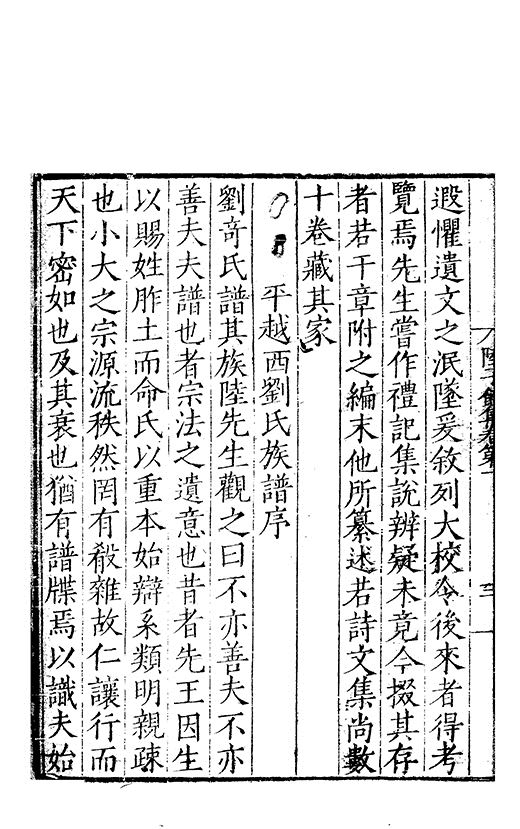 遐懼遺文之泯墜爰敘列大校令後來者得考
覽焉先生嘗作禮記集說辨疑未竟今掇其存
者若干章附之編末他所纂述若詩文集尚數
十卷藏其家
平越西劉氏族譜序
劉奇氏譜其族陸先生觀之曰不亦善夫不亦
善夫夫譜也者宗法之遺意也昔者先王因生
以賜姓胙土而命氏以重本始辯系類明親疎
也小大之宗源流秩然罔有殽雜故仁讓行而
天下密如也及其衰也猶有譜牒焉以識夫始
三